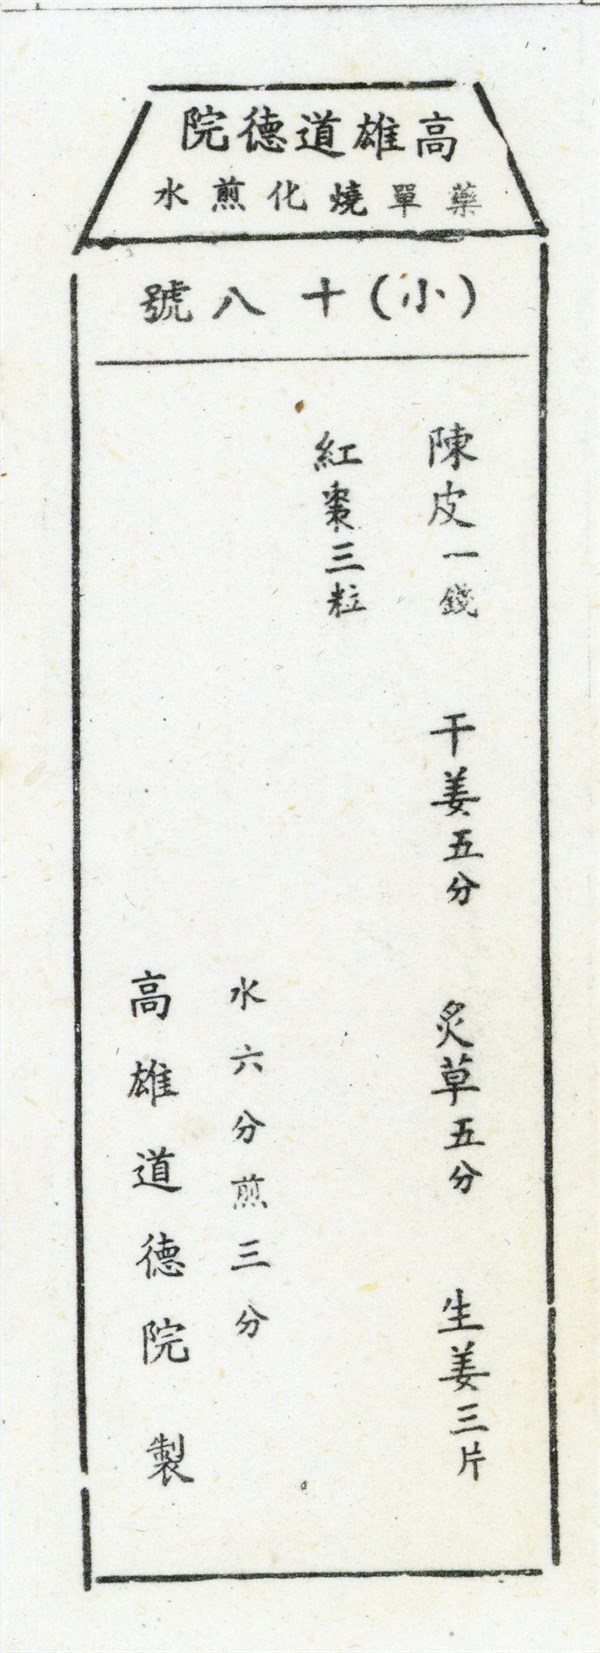 高雄道德院
藥單燒化煎水
(小)十八號
陳皮一錢 干姜五分 炙草五分 生姜三片
紅棗三粒
水六分煎三分
高雄道德院製